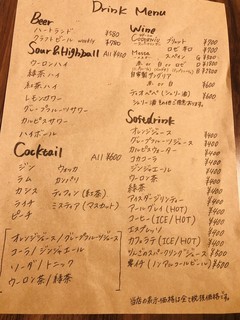 Drink Menu
Beer
ハートランド ¥580
クラフトビール weekly ¥780
Sour & Highball All ¥400
ウーロンハイ
緑茶ハイ
紅茶ハイ
レモンサワー
グレープフルーツサワー
カルピスサワー
ハイボール
Cocktail All ¥600
ジン ウォッカ
ラム カンパリ
カシス ティフィン(紅茶)
ライチ ミスティア(マスカット)
ピーチ
オレンジジュース/グレープフルーツジュース
コーラ/ジンジャエール
ソーダ/トニック
ウーロン茶/緑茶
Wine
グラス ¥500
ロゼ
スペイン
赤 or 白
自家製サングリア
赤 or 白
ティオペペ(シェリー酒) ¥650
Softdrink
オレンジジュース ¥400
グレープフルーツジュース ¥400
カルピスウォーター ¥400
コカコーラ ¥400
ジンジャエール ¥400
ウーロン茶 ¥400
緑茶 ¥400
アイスダージリンティー ¥400
アールグレイ(HOT) ¥400
コーヒー(ICE/HOT) ¥400
エスプレッソ ¥400
カフェラテ(ICE/HOT) ¥400
りんごのスパークリングジュース ¥400
(ノンアルコールビール)
当店の表示価格は全て税抜価格です。